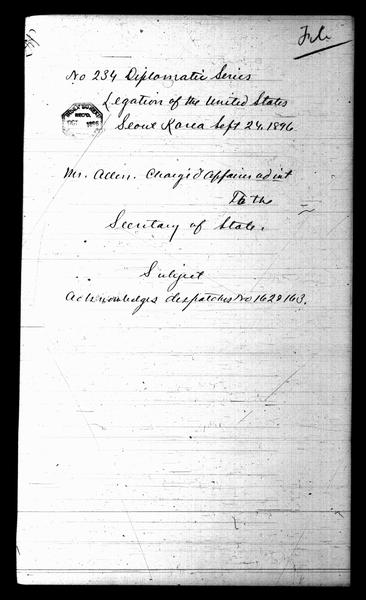 File
No 234 Diplomatic Series
Legation of the United States
Seoul Korea Sept 24, 1896
REC'D.
Mr. Allen. Chargé d'Affaires ad int
To the
Secretary of State.
Subject
Acknowledges despatches No 162 & 163.